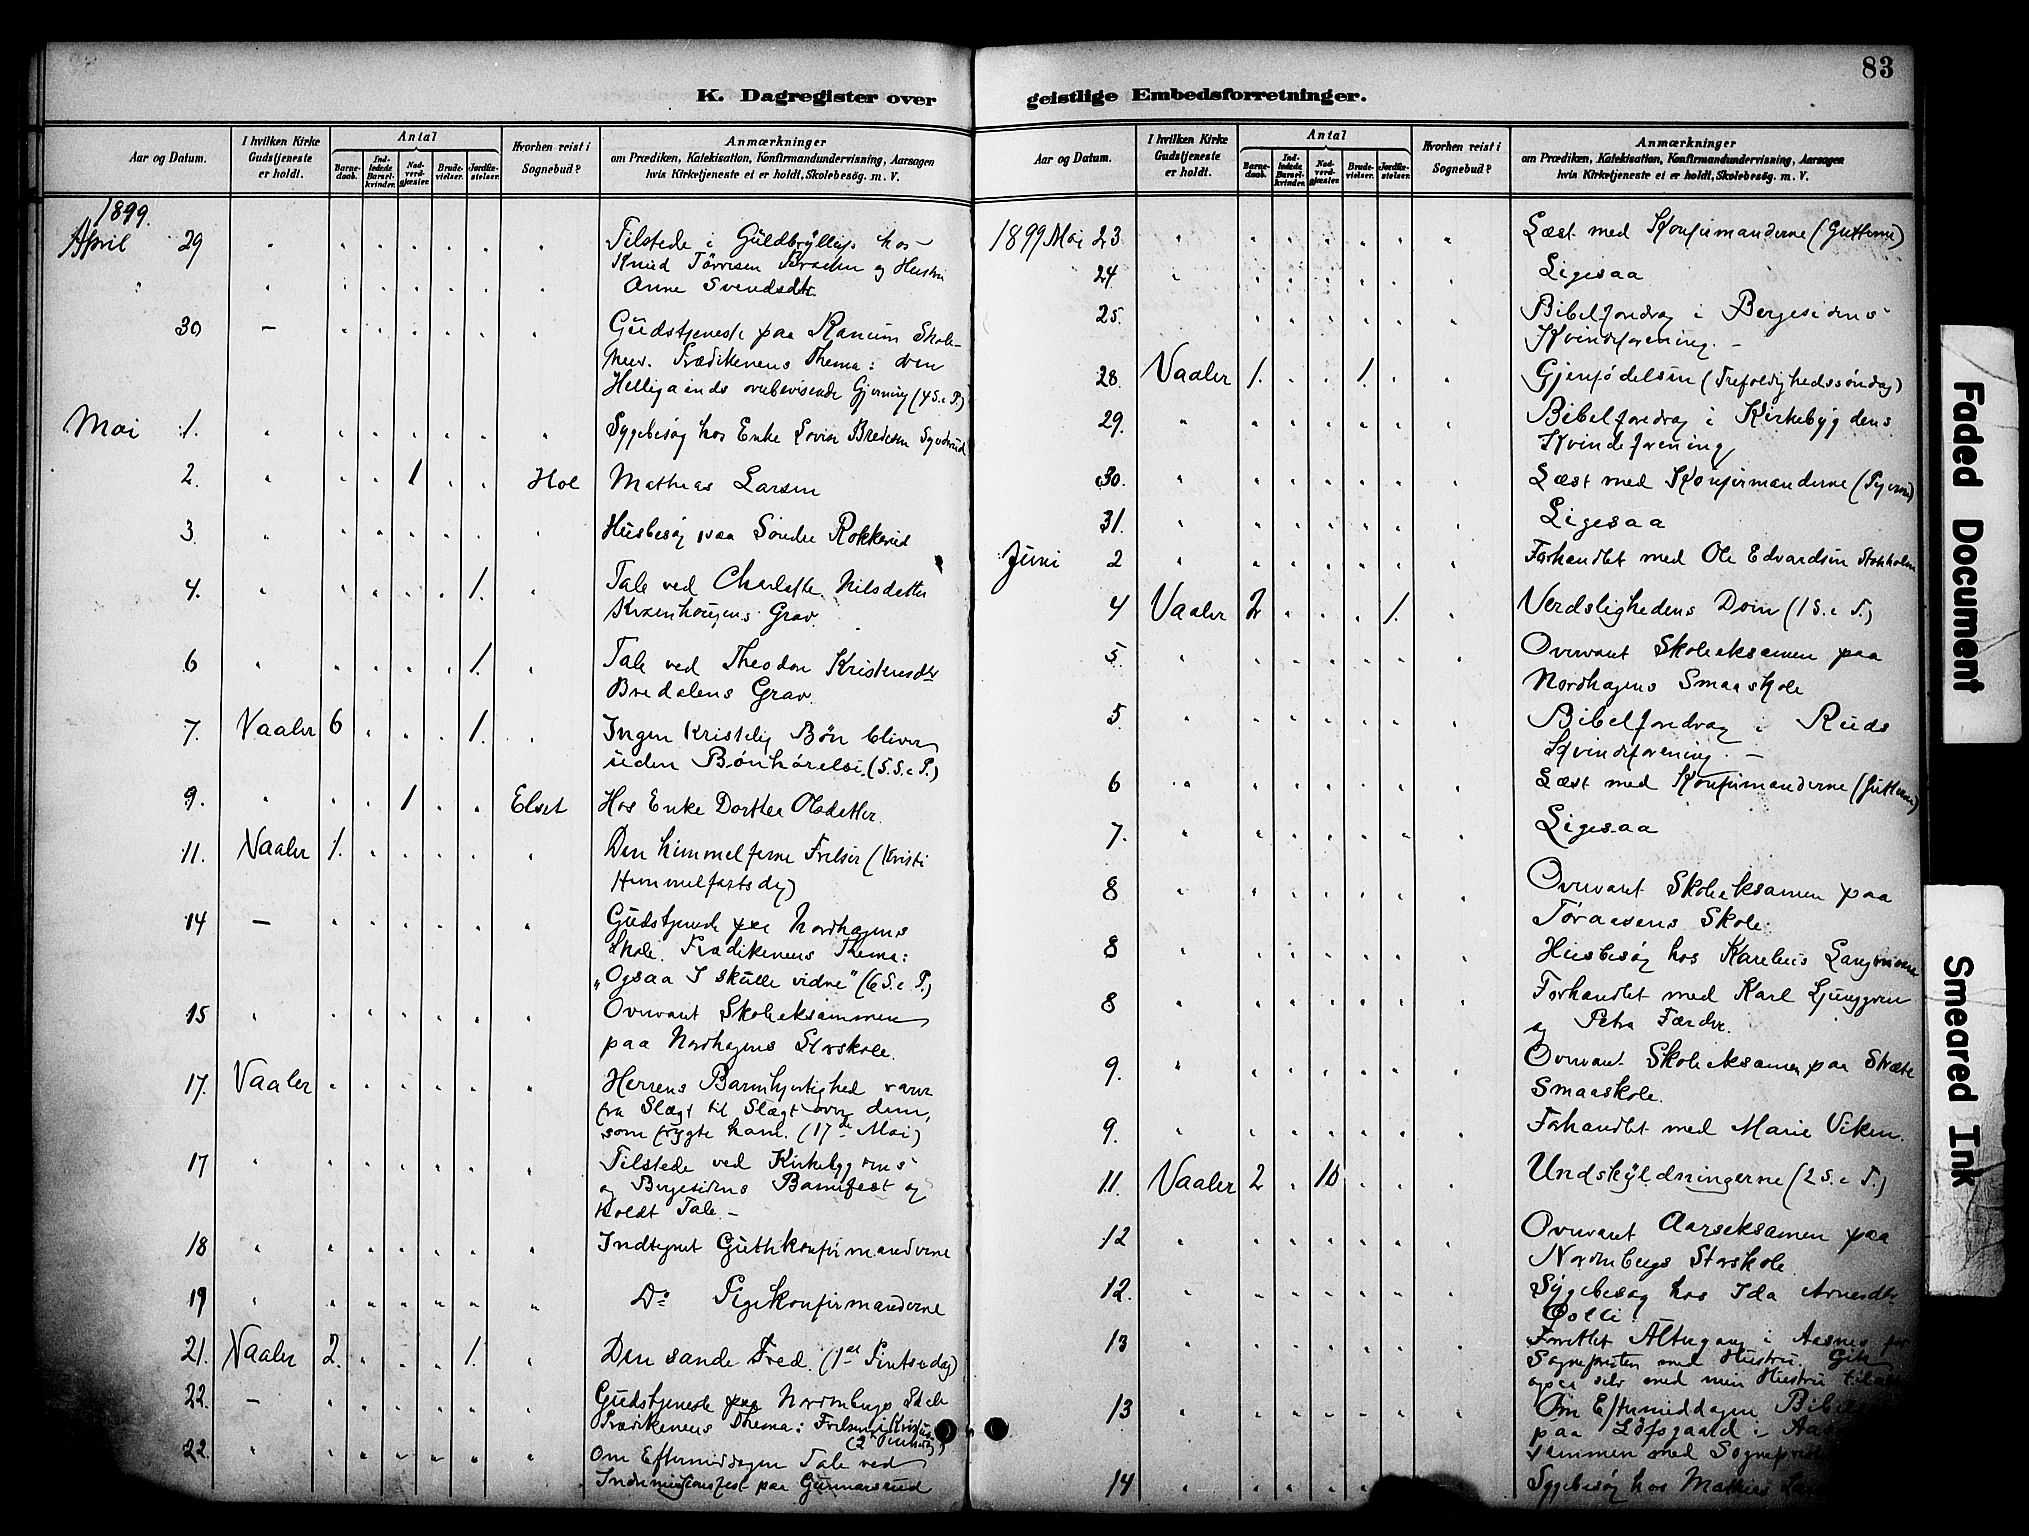 83
K. Dagregister over
geistlige Embedsforretninger.
Aar og Datum.
I hvilken Kirke Gudstjeneste er holdt.
Antal
Barne-daab.
Ind-ledede Barsel-kvinder.
Nad-verd-gjæster.
Brude-vielser.
Jordfæ-stelser.
Hvorhen reist i Sognebud?
Anmærkninger
om Prædiken, Katekisation, Konfirmandundervisning, Aarsagen
hvis Kirketjeneste ei er holdt, Skolebesøg. m. V.
1899.
April 29 Tilstede i Guldbryllup hos
Knud Tørrisen Braten og Hustru
Anne Svendsdtr.
30 — Gudstjeneste paa Skole-
huus. Prædikenens Thema: den
Helligaands overbevisende Gjerning (4 S. e. P.)
Mai 1. Sygebesøg hos Enke Lovise Bredesen
2. 1 Hol Mathias Larsen
3. Husbesøg paa Søndre Rokkerud
4. 1. Tale ved Charlotte Nilsdatter
Grav.
6 1. Tale ved Theodor Kristensdtr
Bredalens Grav.
7. Vaaler 6 1. Ingen kristelig Bøn bliver
uden Bønhørelse. (5. S. e. P.)
9. 1 Elset Hos Enke Dorthe Olsdatter.
11. Vaaler 1. Den himmelfarne Frelser (Kristi
Himmelfartsdag)
14 — Gudstjeneste paa Nordhagens
Skole. Prædikenens Thema:
„Ogsaa I skulle vidne" (6 S. e. P.)
15 Overvaret Skoleeksammen
paa Nordhagens Storskole.
17. Vaaler Herrens Barmhjertighed varer
fra Slægt til Slægt over dem,
som frygte ham. (17de Mai)
17 Tilstede ved Kirkebygdens
og Bergesidens Barnefest og
holdt Tale. —
18 Indtegnet Guttekonfirmanderne
19 Do Pigekonfirmanderne
21. Vaaler 2. 1. Den sande Fred. (1ste Pintsedag)
22. — Gudstjeneste paa Nordbergs Skole
Prædikenens Thema: Frelsen i Kristus
22. Om Eftermiddagen Tale ved
Indremissionsfest paa Gunnarsrud
Aar og Datum.
I hvilken Kirke Gudstjeneste er holdt.
Antal
Barne-daab.
Ind-ledede Barsel-kvinder.
Nad-verd-gjæster.
Brude-vielser.
Jordfæ-stelser.
Hvorhen reist i Sognebud?
Anmærkninger
om Prædiken, Katekisation, Konfirmandundervisning, Aarsagen
hvis Kirketjeneste ei er holdt, Skolebesøg. m. V.
1899 Mai 23 Læst med Konfirmanderne (Gutterne)
24 Ligesaa
25. Bibelforedrag i Bergesidens
Kvindeforening. —
28. Vaaler 1. 1. Gjenfødelsen (Trefoldighedssøndag)
29. Bibelforedrag i Kirkebygdens
Kvindeforening
30. Læst med Konfirmanderne (Pigerne)
31. Ligesaa
Juni 2 Forhandlet med Ole Edvardsen Stokholm
4 Vaaler 2 1. Verdslighedens Dom (1 S. e. T.)
5. Overvaret Skoleeksamen paa
Nordhagens Smaaskole
5 Bibelforedrag i Ruds
Kvindeforening. —
6 Læst med Konfirmanderne (Gutterne)
7. Ligesaa
8 Overvaret Skoleeksamen paa
Toraasens Skole.
8 Husbesøg hos Karelius
8 Forhandlet med Karl Ljunggren
og Petra Færder.
9. Overvaret Skoleeksamen paa Stræte
Smaaskole.
9. Forhandlet med Marie Viken.
11. Vaaler 2 10 Undskyldningerne (2 S. e. T.)
12 Overvaret Aarseksamen paa
Nordbergs Storskole
12. Sygebesøg hos Ida Arnesdtr
13 Forrettet Altergang i Aasnes for
Sognepresten med Hustru. Gik
ogsaa selv med min Hustru
13 Om Eftermiddagen
paa Løfsgaard i
sammen med
14 Sygebesøg hos Mathias
Faded Document
Smeared Ink